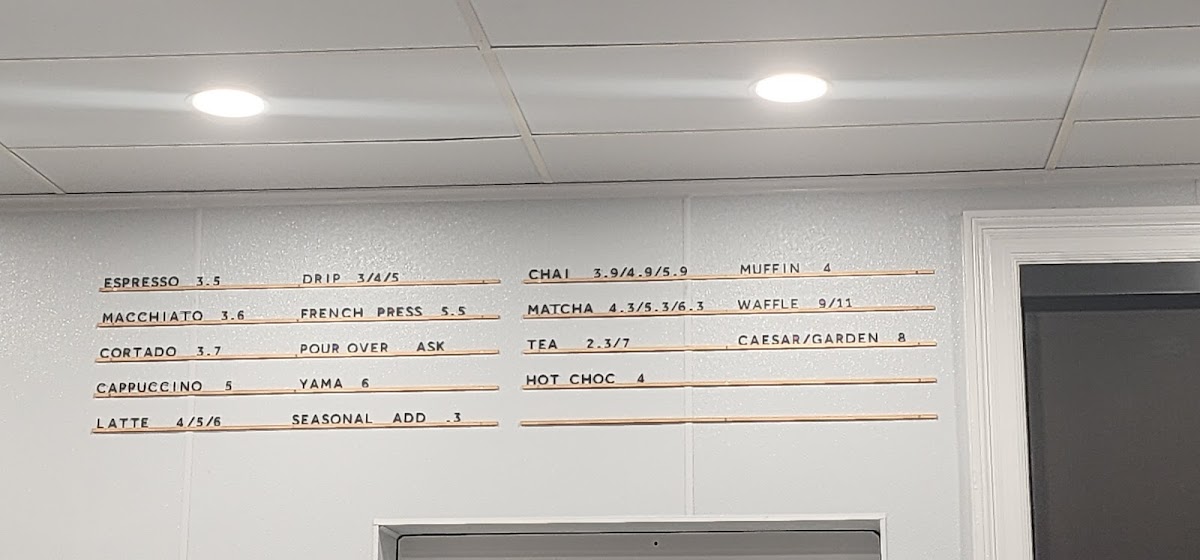 ESPRESSO 3.5
MACCHIATO 3.6
CORTADO 3.7
CAPPUCCINO 5
LATTE 4/5/6
DRIP 3/4/5
FRENCH PRESS 5.5
POUR OVER ASK
YAMA 6
SEASONAL ADD .3
CHAI 3.9/4.9/5.9
MATCHA 4.3/5.3/6.3
TEA 2.3/7
HOT CHOC 4
MUFFIN 4
WAFFLE 9/11
CAESAR/GARDEN 8